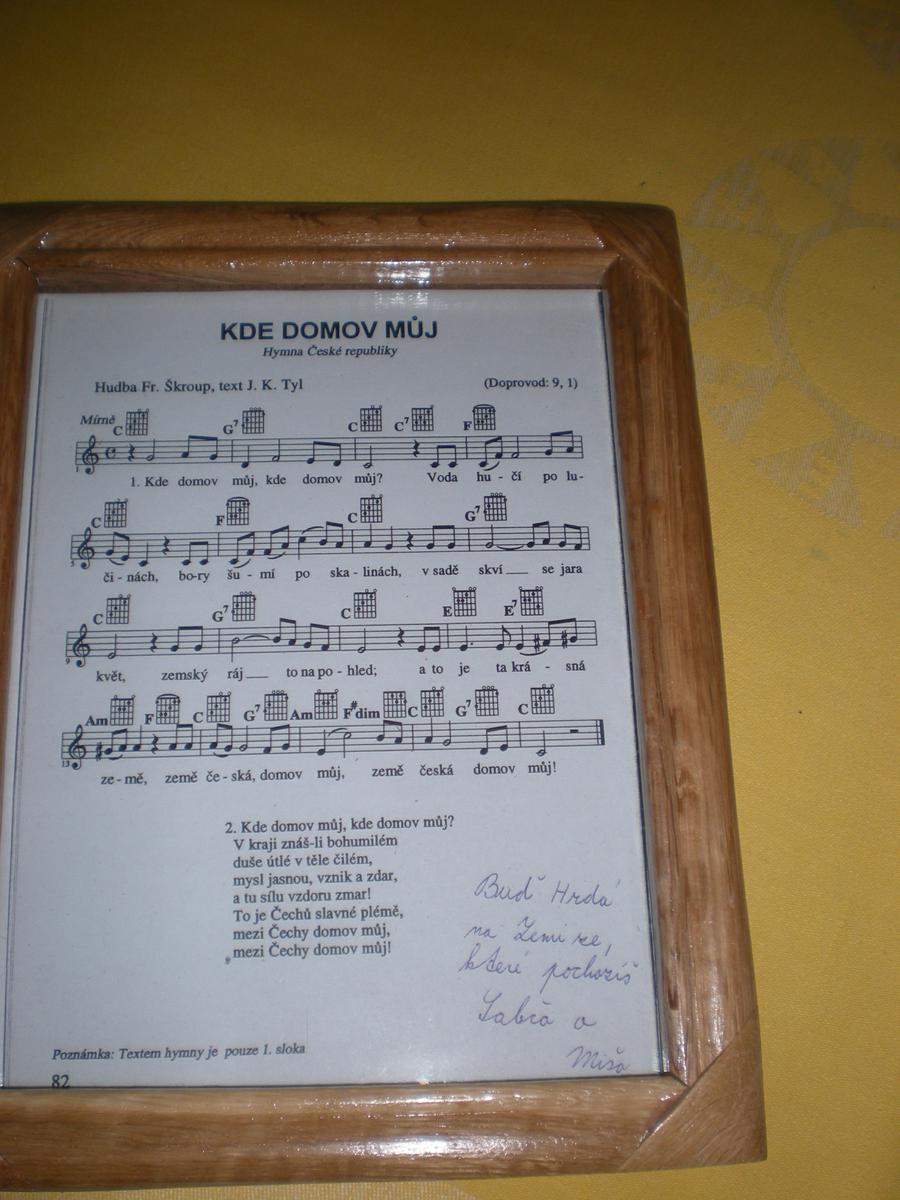 KDE DOMOV MŮJ
Hymna České republiky
Hudba Fr. Škroup, text J. K. Tyl (Doprovod: 9, 1)
Mírně C G7 C C7 F
1
1. Kde domov můj, kde domov můj? Voda hu - čí po lu-
C F C G7
5
či - nách, bo-ry šu - mí po ska - linách, v sadě skví se jara
C G7 C E E7
9
květ, zemský ráj to na po - hled; a to je ta krá - sná
Am F C G7 Am F#dim C G7 C
13
ze - mě, země če - ská, domov můj, země česká domov můj!
2. Kde domov můj, kde domov můj?
V kraji znáš-li bohumilém
duše útlé v těle čilém,
mysl jasnou, vznik a zdar,
a tu sílu vzdoru zmar!
To je Čechů slavné plémě,
mezi Čechy domov můj,
mezi Čechy domov můj!
Buď Hrdá
na Zemi ze,
které pocházíš
a
Míša
Poznámka: Textem hymny je pouze 1. sloka
82